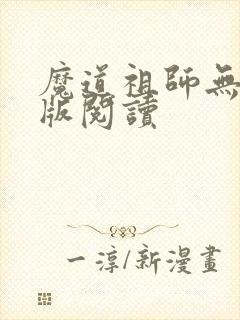 魔道祖師無
版閱讀
一淳/新漫畫